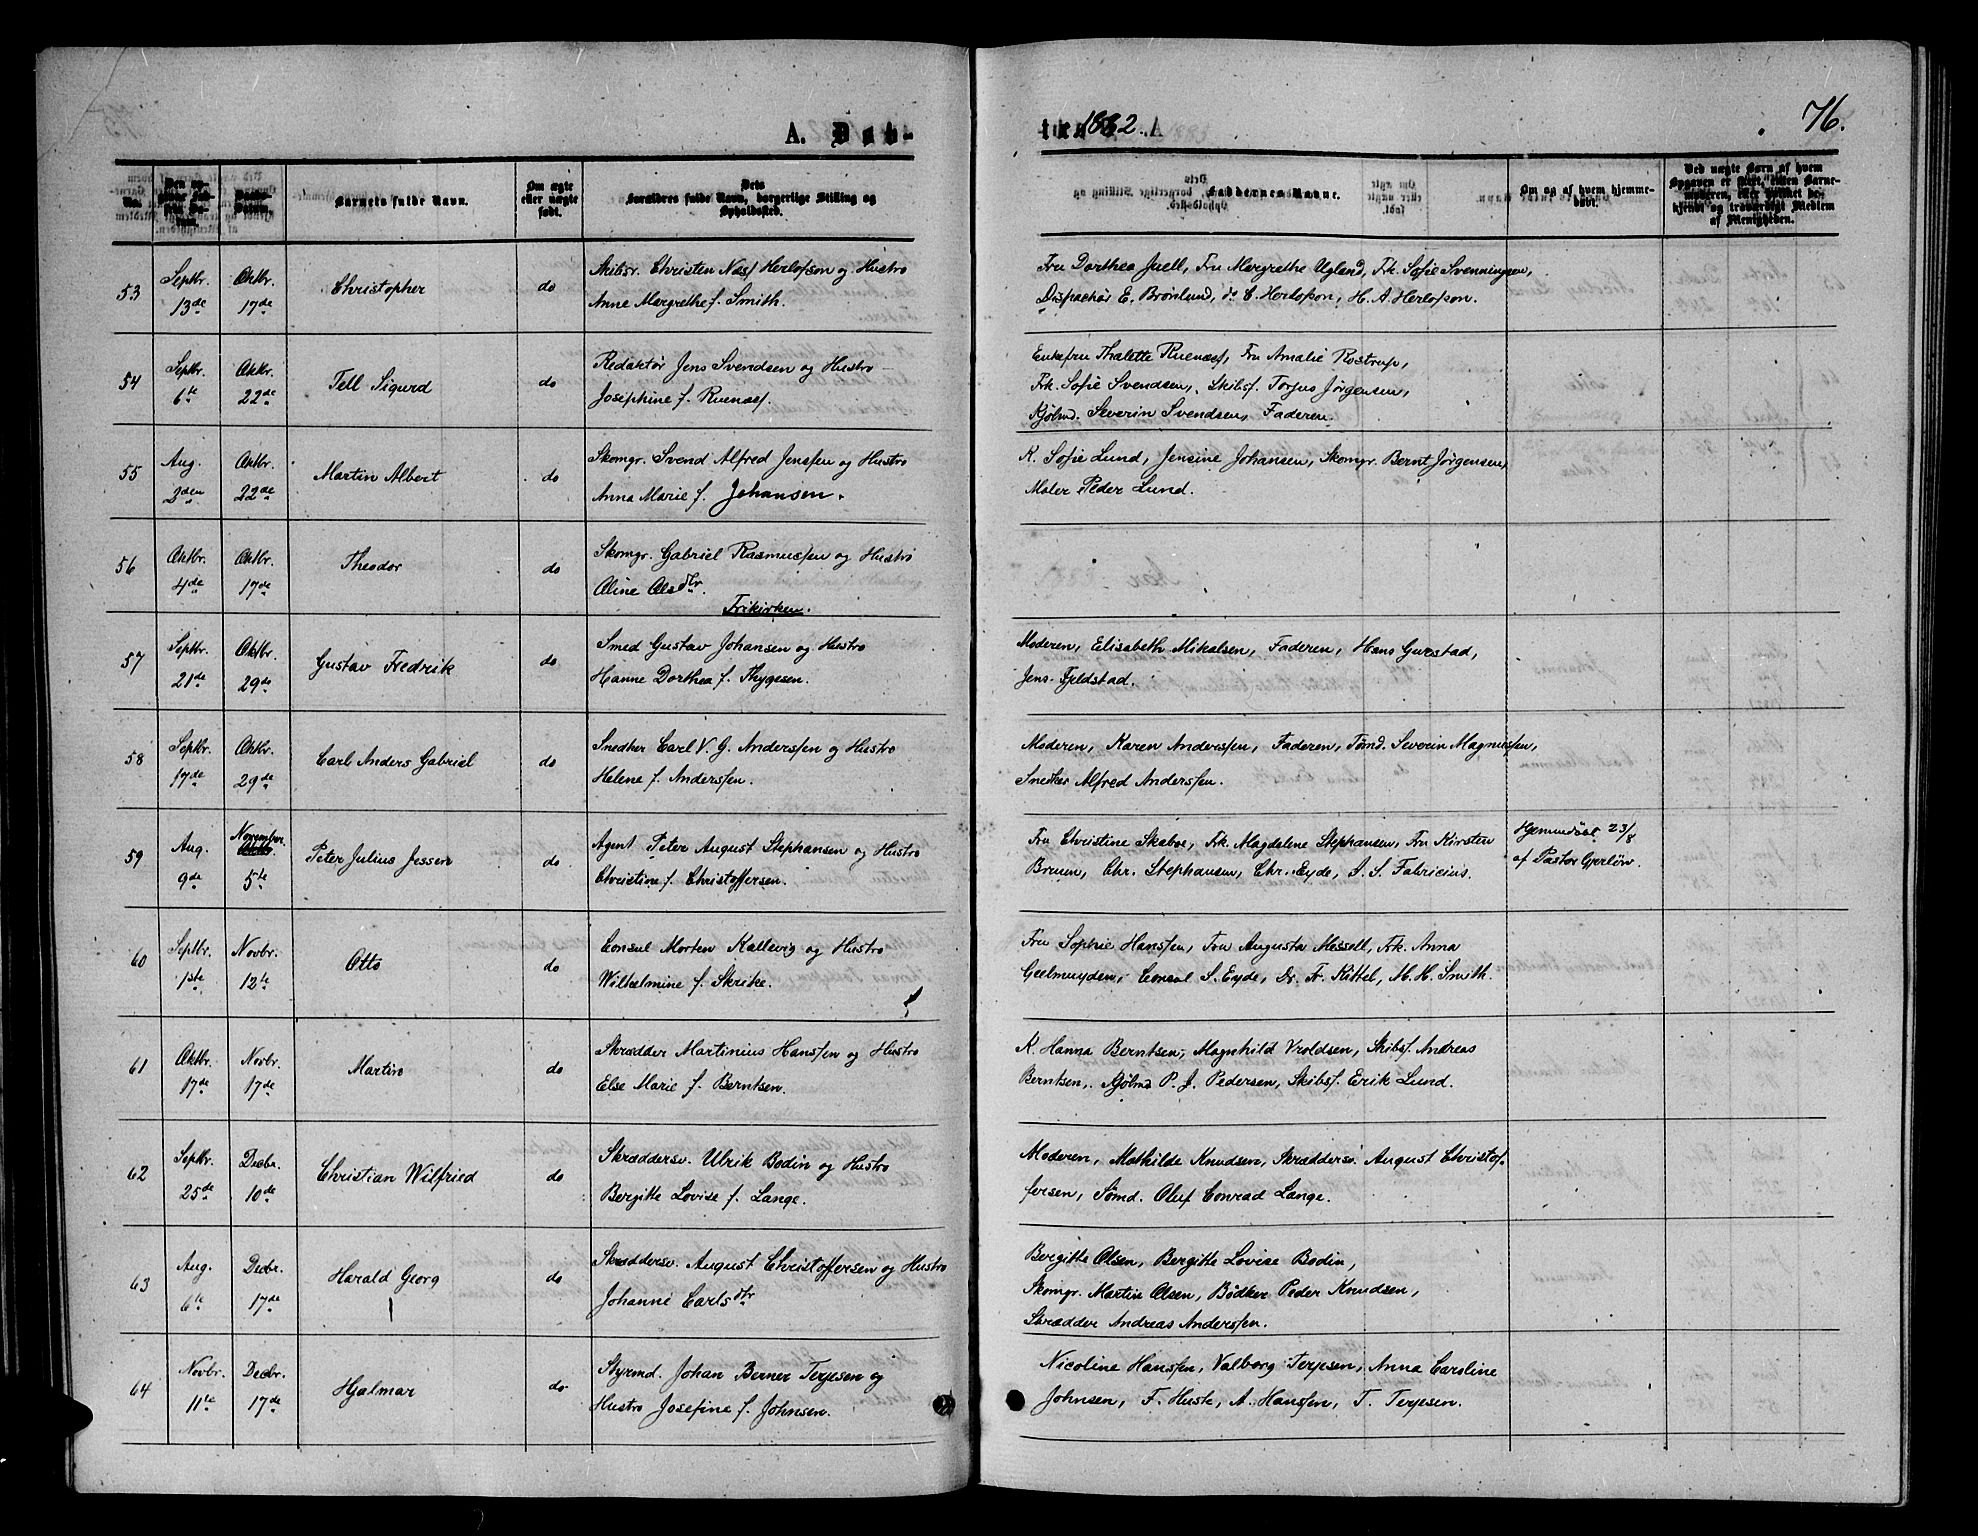 A. Døb-
te 1882. A
76.
No.
Barnets fulde Navn.
Om ægte eller uægte født.
Dets Forældres fulde Navn, borgerlige Stilling og Opholdssted.
Faddernes Navne.
Om og af hvem hjemme-døbt.
Ved uægte Børn af hvem Opgaven er
af Menigheden.
53 Septbr. 13de Oktbr. 17de Christopher do Skibsr. Christen Næss Herlofson og Hustru
Anne Margrethe f. Smith.
Fru Dorthea Juell, Fru Margrethe Ugland, Frk. Sofie Svenningsen,
Dispachør E. Brönlund, do C. Herlofson, H. A. Herlofson.
54 Septbr. 6te Oktbr. 22de Tell Sigurd do Redaktør Jens Svendsen og Hustru
Josephine f. Ruenæs.
Enkefru Thalette Ruenæs, Fru Amalie Rostrup,
Frk. Sofie Svendsen, Skibsf. Torjus Jørgensen,
Kjølmd. Severin Svendsen, Faderen.
55 Aug. Oktbr. 22de Martin Albert do Skomgr. Svend Alfred Jenssen og Hustro
Anna Marie f. Johansen.
K. Sofie Lund, Jensine Johansen, Skomgr. Bernt Jørgensen,
Maler Peder Lund.
56 Oktbr. 4de Oktbr. 17de Theodor do Skomgr. Gabriel Rasmussen og Hustro
Aline Olsdtr.
Frikirken.
57 Septbr. 21de Oktbr. 29de Gustav Fredrik do Smed Gustav Johansen og Hustro
Hanne Dorthea f. Thygesen.
Moderen, Elisabeth Mikalsen, Faderen, Hans Gurstad,
Jens Fjeldstad.
58 Septbr. 17de Oktbr. 29de Carl Anders Gabriel do Snedker Carl V. G. Anderssen og Hustro
Helene f. Anderssen.
Moderen, Karen Anderssen, Faderen, Tømd. Severin Magnussen,
Snedker Alfred Anderssen.
59 Aug. 9de November 5te Peter Julius Jessen do Agent Peter August Stephansen og Hustro
Christine f. Christoffersen.
Fru Christine Skaboe, Frk. Magdalene Stephansen, Fru Kirsten
Bruun, Chr. Stephansen, Chr. Eyde, I. S. Fabricius.
Hjemmedøbt 23/8
af Pastor Gjerløw.
60 Septbr. 1ste Novbr. 12te Otto do Consul Morten Kallevig og Hustro
Wilhelmine f. Skrike.
Fru Sophie Hanssen, Fru Augusta Messell, Frk. Anna
Geelmuyden, Consul S. Eyde, Dr. Fr. Kittel, M. H. Smith.
61 Oktbr. 17de Novbr. 17de Martin do Skrædder Martinius Hanssen og Hustro
Else Marie f. Berntsen.
K. Hanna Berntsen, Magnhild Vroldsen, Skibsf. Andreas
Berntsen, Kjølmd P. J. Pedersen, Skibsf. Erik Lund.
62 Septbr. 25de Decbr. 10de Christian Wilfried do Skræddersv. Ulrik Bodin og Hustro
Bergitte Lovise f. Lange.
Moderen, Mathilde Knudsen, Skræddersv. August Christof-
fersen, Sømd. Oluf Conrad Lange.
63 Aug. 6te Decbr. 17de Harald Georg do Skræddersv. August Christoffersen og Hustro
Johanne Carlsdtr
Bergitte Olsen, Bergitte Lovise Bodin,
Skomgr. Martin Olsen, Bödker Peder Knudsen,
Skrædder Andreas Anderssen.
64 Novbr. 11te Decbr. 17de Hjalmar do Styrmd. Johan Berner Terjesen og
Hustro Josefine f. Johnsen.
Nicoline Hanssen, Valborg Terjesen, Anna Caroline
Johnsen, F. Huste, A. Hanssen, T. Terjesen.